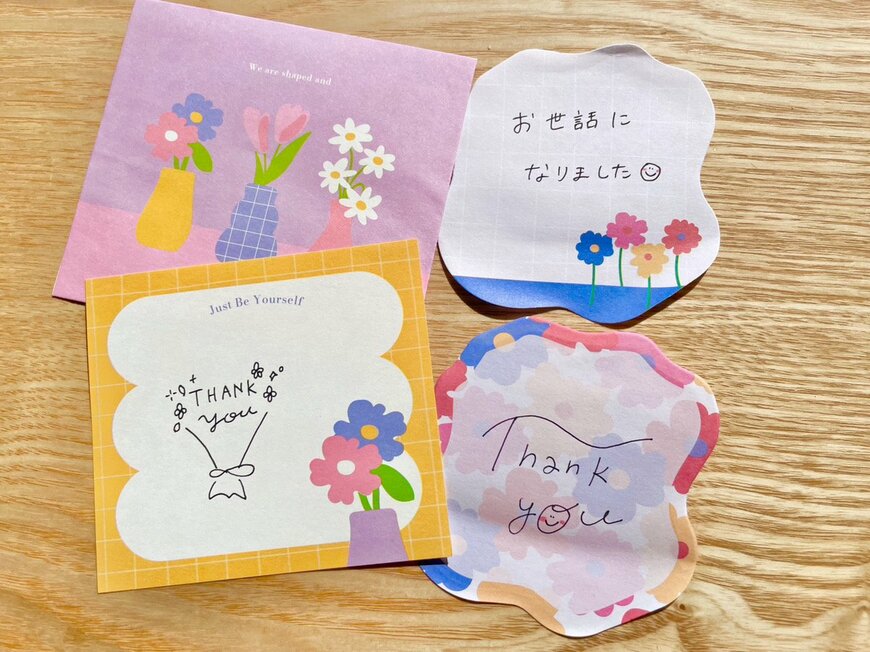 We are shaped and
お世話に
なりました
Just Be Yourself
THANK
you
Thank
you